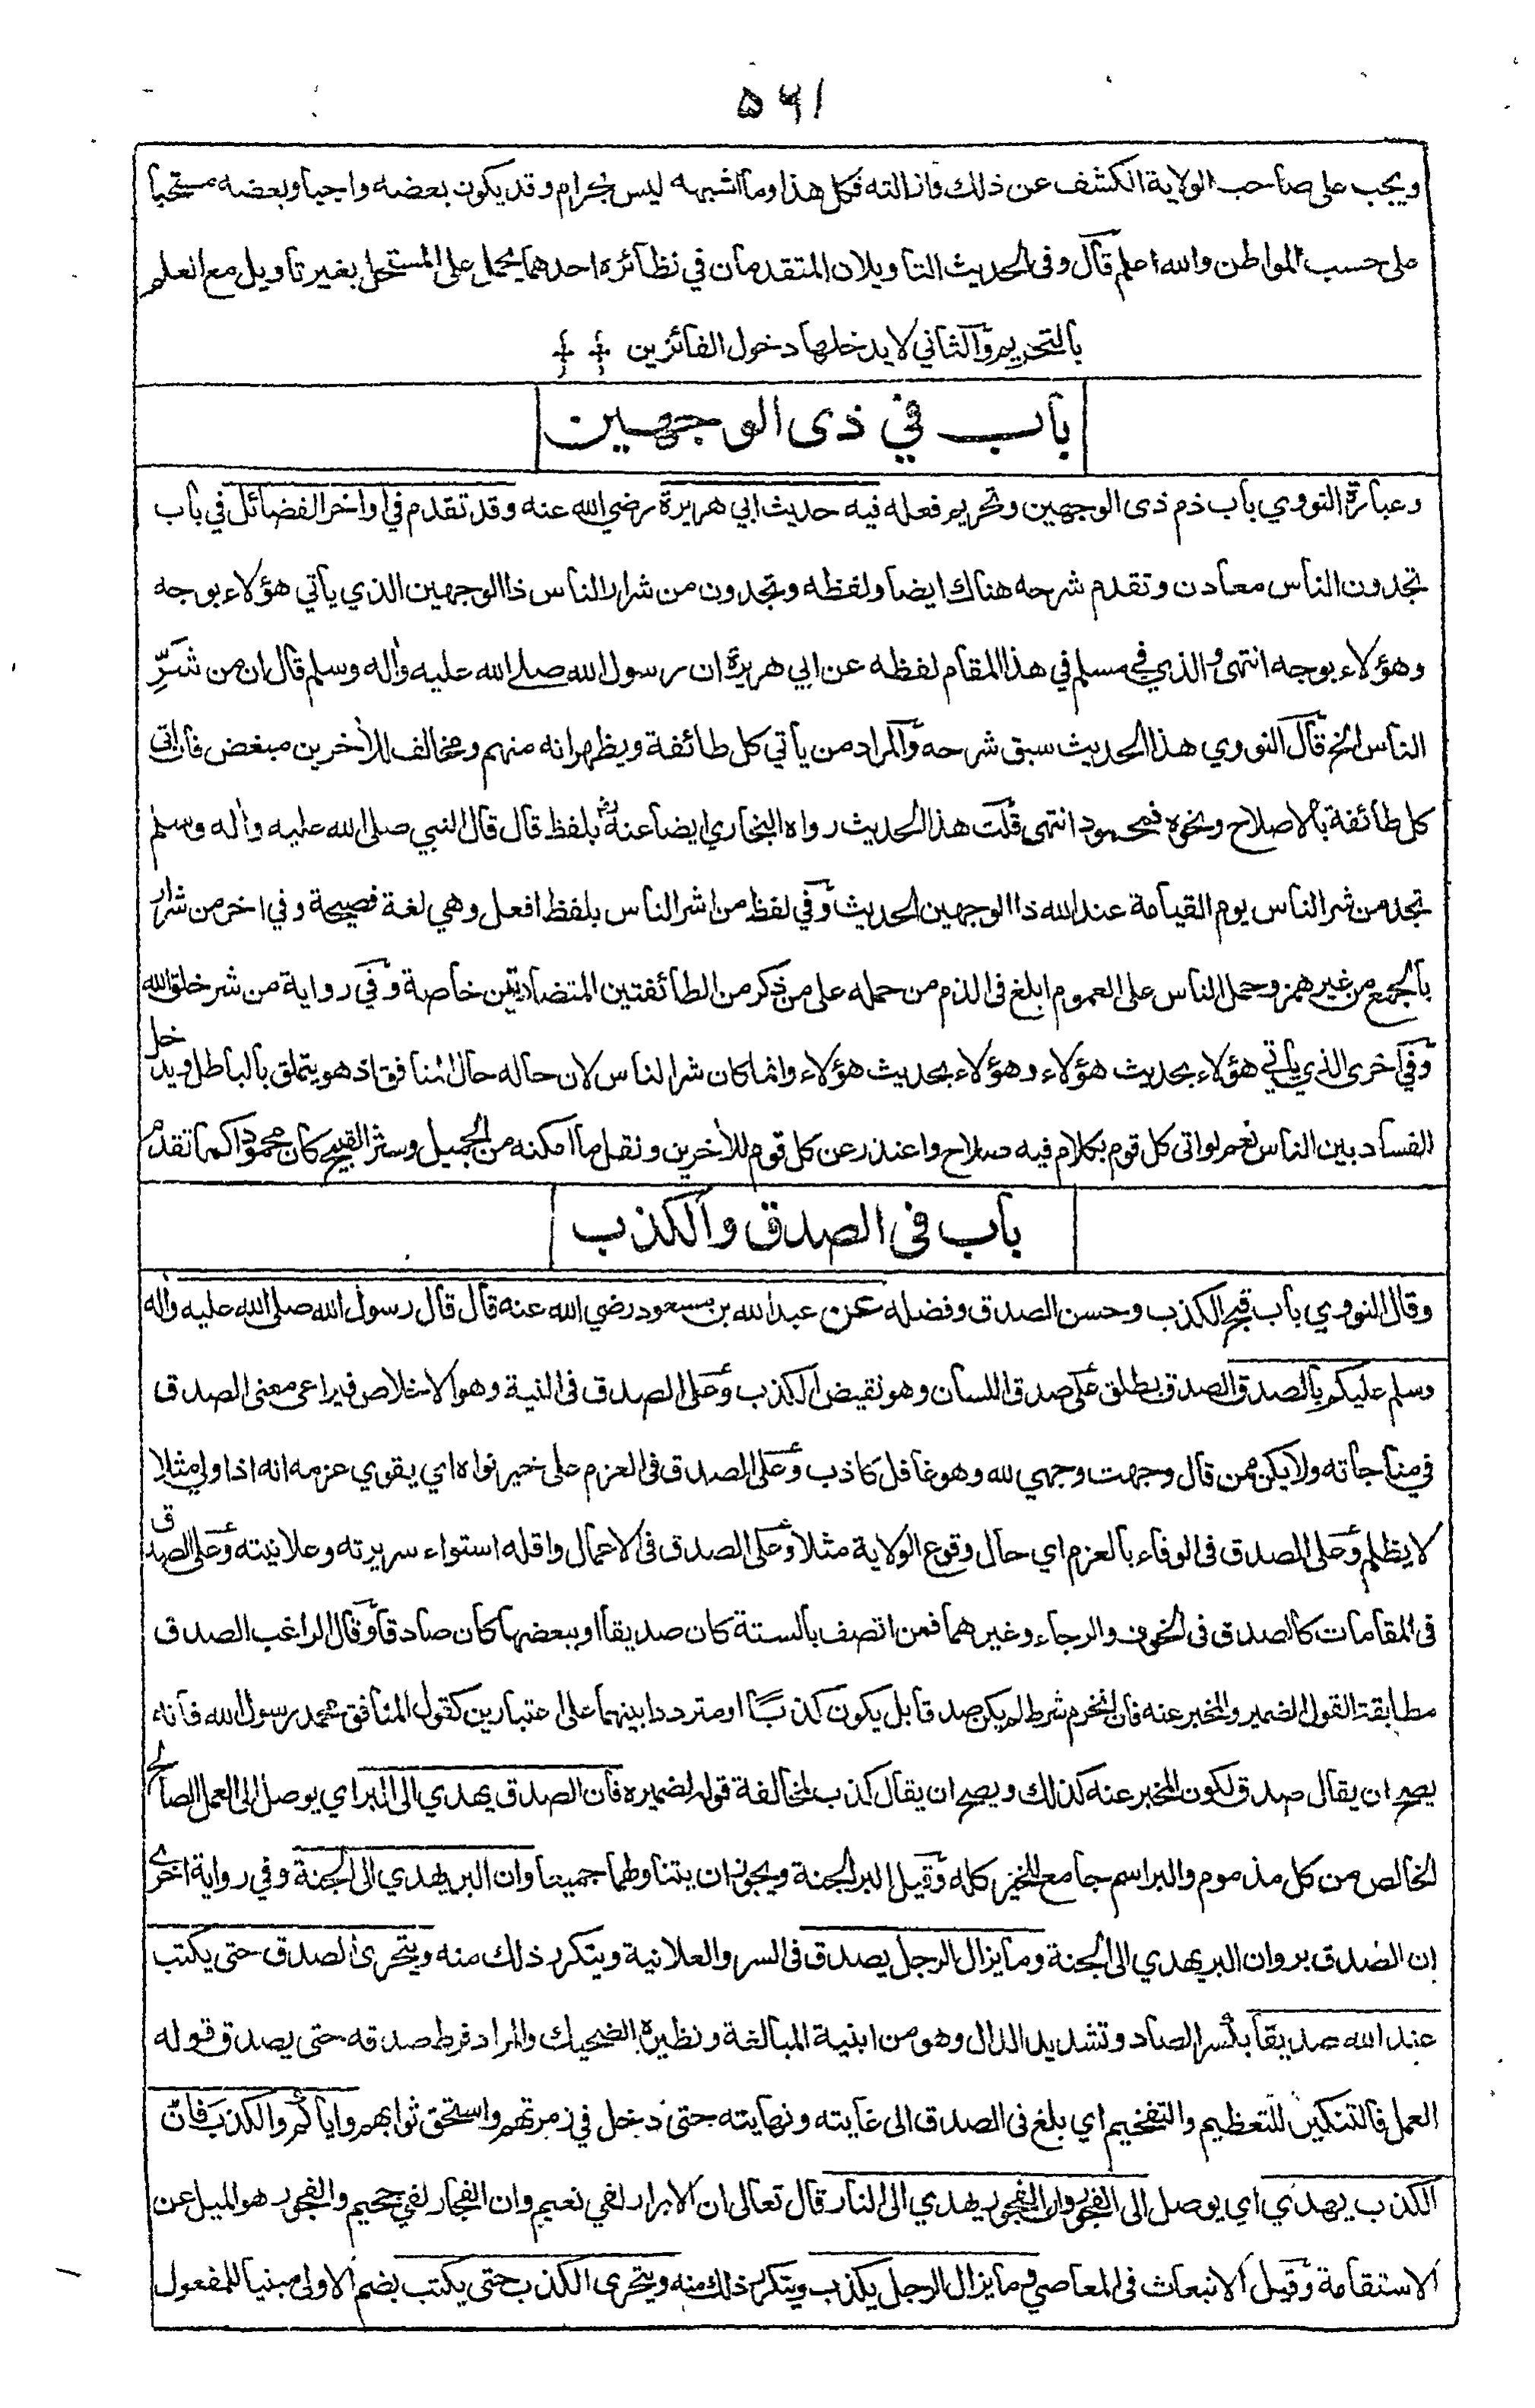 ٥٦١
ويجب على صاحب الولاية الكشف عن ذلك وازالته فكل هذا وما اشبهه ليس بحرام وقد يكون بعضه واجبا وبعضه مستحبا
على حسب المواطن والله اعلم قال وفى الحديث التاويلان المتقدمان في نظائره احدهما يحمل على المستحل بغير تاويل مع العلم
بالتحريم والثاني لا يدخلها دخول الفائزين
باب في ذى الوجهين
وعبارة النووي باب ذم ذى الوجهين وتحريم فعله فيه حديث ابي هريرة رضي الله عنه وقد تقدم في اواخر الفضائل في باب
تجدون الناس معادن وتقدم شرحه هناك ايضا ولفظه وتجدون من شرار الناس ذا الوجهين الذي يأتي هؤلاء بوجه
وهؤلاء بوجه انتهى والذي في مسلم في هذا المقام لفظه عن ابي هريرة ان رسول الله صلى الله عليه وأله وسلم قال ان من شَرِّ
الناس الخ قال النووي هذا الحديث سبق شرحه والمراد من يأتي كل طائفة ويظهر انه منهم ومخالف للأخرين مبغض فان اتى
كل طائفة بالاصلاح ونحوه فمحمود انتهى قلت هذا الحديث رواه البخاري ايضا عنه بلفظ قال قال النبي صلى الله عليه وأله وسلم
تجد من شر الناس يوم القيامة عند الله ذا الوجهين الحديث وفي لفظ من اشر الناس بلفظ افعل وهي لغة فصيحة وفي اخر من شرار
بالجمع من غير همز وحمل الناس على العموم ابلغ فى الذم من حمله على من ذكر من الطائفتين المتضادتين خاصة وفي رواية من شر خلق الله
وفي اخرى الذي يأتي هؤلاء بحديث هؤلاء وهؤلاء بحديث هؤلاء وانما كان شر الناس لان حاله حال المنافق اذ هو يتملق بالباطل ويدخل
الفساد بين الناس نعم لو اتى كل قوم بكلام فيه صلاح واعتذر عن كل قوم للأخرين ونقل ما امكنه من الجميل وستر القبيح كان محمودا كما تقدم
باب فى الصدق والكذب
وقال النووي باب قبح الكذب وحسن الصدق وفضله عن عبد الله بن مسعود رضي الله عنه قال قال رسول الله صلى الله عليه وأله
وسلم عليكم بالصدق الصدق يطلق على صدق اللسان وهو نقيض الكذب وعلى الصدق فى النية وهو الاخلاص فيراعى معنى الصدق
في مناجاته ولا يكن ممن قال وجهت وجهي لله وهو غافل كاذب وعلى الصدق فى العزم على خير نواه اي يقوي عزمه انه اذا ولي مثلا
لا يظلم وعلى الصدق فى الوفاء بالعزم اي حال وقوع الولاية مثلا وعلى الصدق فى الاعمال واقله استواء سريرته وعلانيته وعلى الصدق
فى المقامات كالصدق فى الخوف والرجاء وغيرهما فمن اتصف بالستة كان صديقا او ببعضها كان صادقا وقال الراغب الصدق
مطابقة القول الضمير والمخبر عنه فان انخرم شرط لم يكن صدقا بل يكون كذبًا او مترددا بينهما على اعتبارين كقول المنافق محمد رسول الله فانه
يصح ان يقال صدق لكون المخبر عنه كذلك ويصح ان يقال كذب لمخالفة قوله لضميره فان الصدق يهدي الى البر اي يوصل الى العمل الصالح
الخالص من كل مذموم والبر اسم جامع للخير كله وقيل البر الجنة ويجوز ان يتناولهما جميعا وان البر يهدي الى الجنة وفي رواية اخرى
ان الصدق بر وان البر يهدي الى الجنة وما يزال الرجل يصدق فى السر والعلانية ويتكرر ذلك منه ويتحرى الصدق حتى يكتب
عند الله صديقا بكسر الصاد وتشديد الدال وهو من ابنية المبالغة ونظيره الضحيك والمراد فرط صدقه حتى يصدق قوله
العمل فالتنكير للتعظيم والتفخيم اي بلغ فى الصدق الى غايته ونهايته حتى دخل في زمرتهم واستحق ثوابهم واياكم والكذب فان
الكذب يهدي اي يوصل الى الفجور وان الفجور يهدي الى النار قال تعالى ان الابرار لفي نعيم وان الفجار لفي جحيم والفجور هو الميل عن
الاستقامة وقيل الانبعاث فى المعاصي وما يزال الرجل يكذب ويتكرر ذلك منه ويتحرى الكذب حتى يكتب بضم الاولى مبنيا للمفعول